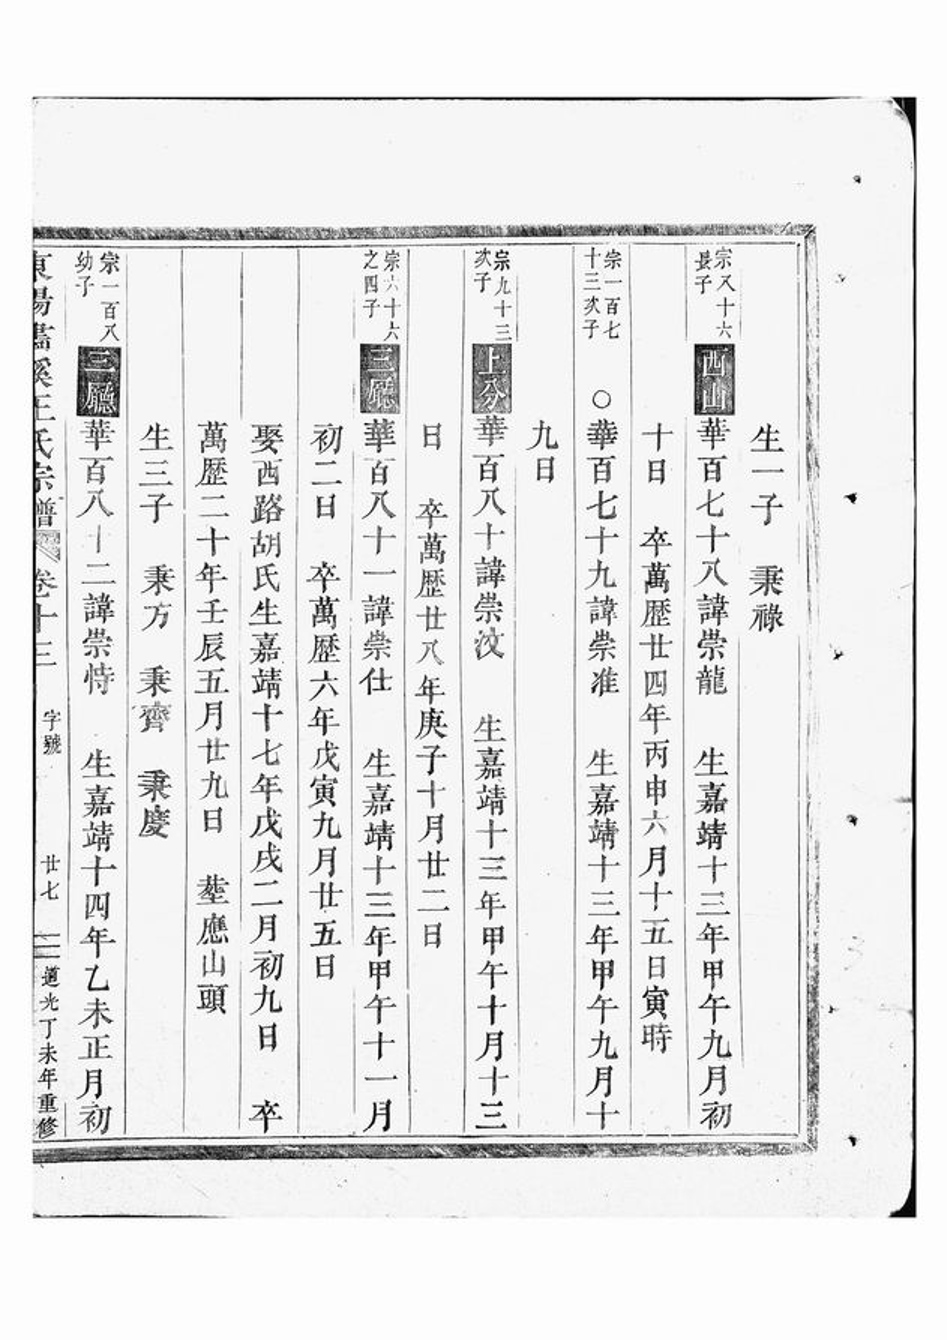 生一子 秉祿
宗八十六
長子
西山 華百七十八諱崇龍 生嘉靖十三年甲午九月初
十日 卒萬歷廿四年丙申六月十五日寅時
宗一百七
十三次子
○華百七十九諱崇准 生嘉靖十三年甲午九月十
九日
宗九十三
次子
上分 華百八十諱崇汶 生嘉靖十三年甲午十月十三
日 卒萬歷廿八年庚子十月廿二日
宗六十六
之四子
三廳 華百八十一諱崇仕 生嘉靖十三年甲午十一月
初二日 卒萬歷六年戊寅九月廿五日
娶西路胡氏生嘉靖十七年戊戌二月初九日 卒
萬歷二十年壬辰五月廿九日 塟應山頭
生三子 秉方 秉齊 秉度
宗一百八
幼子
三廳 華百八十二諱崇恃 生嘉靖十四年乙未正月初
東陽畵溪王氏宗譜 卷十三 字號 廿七 道光丁未年重修